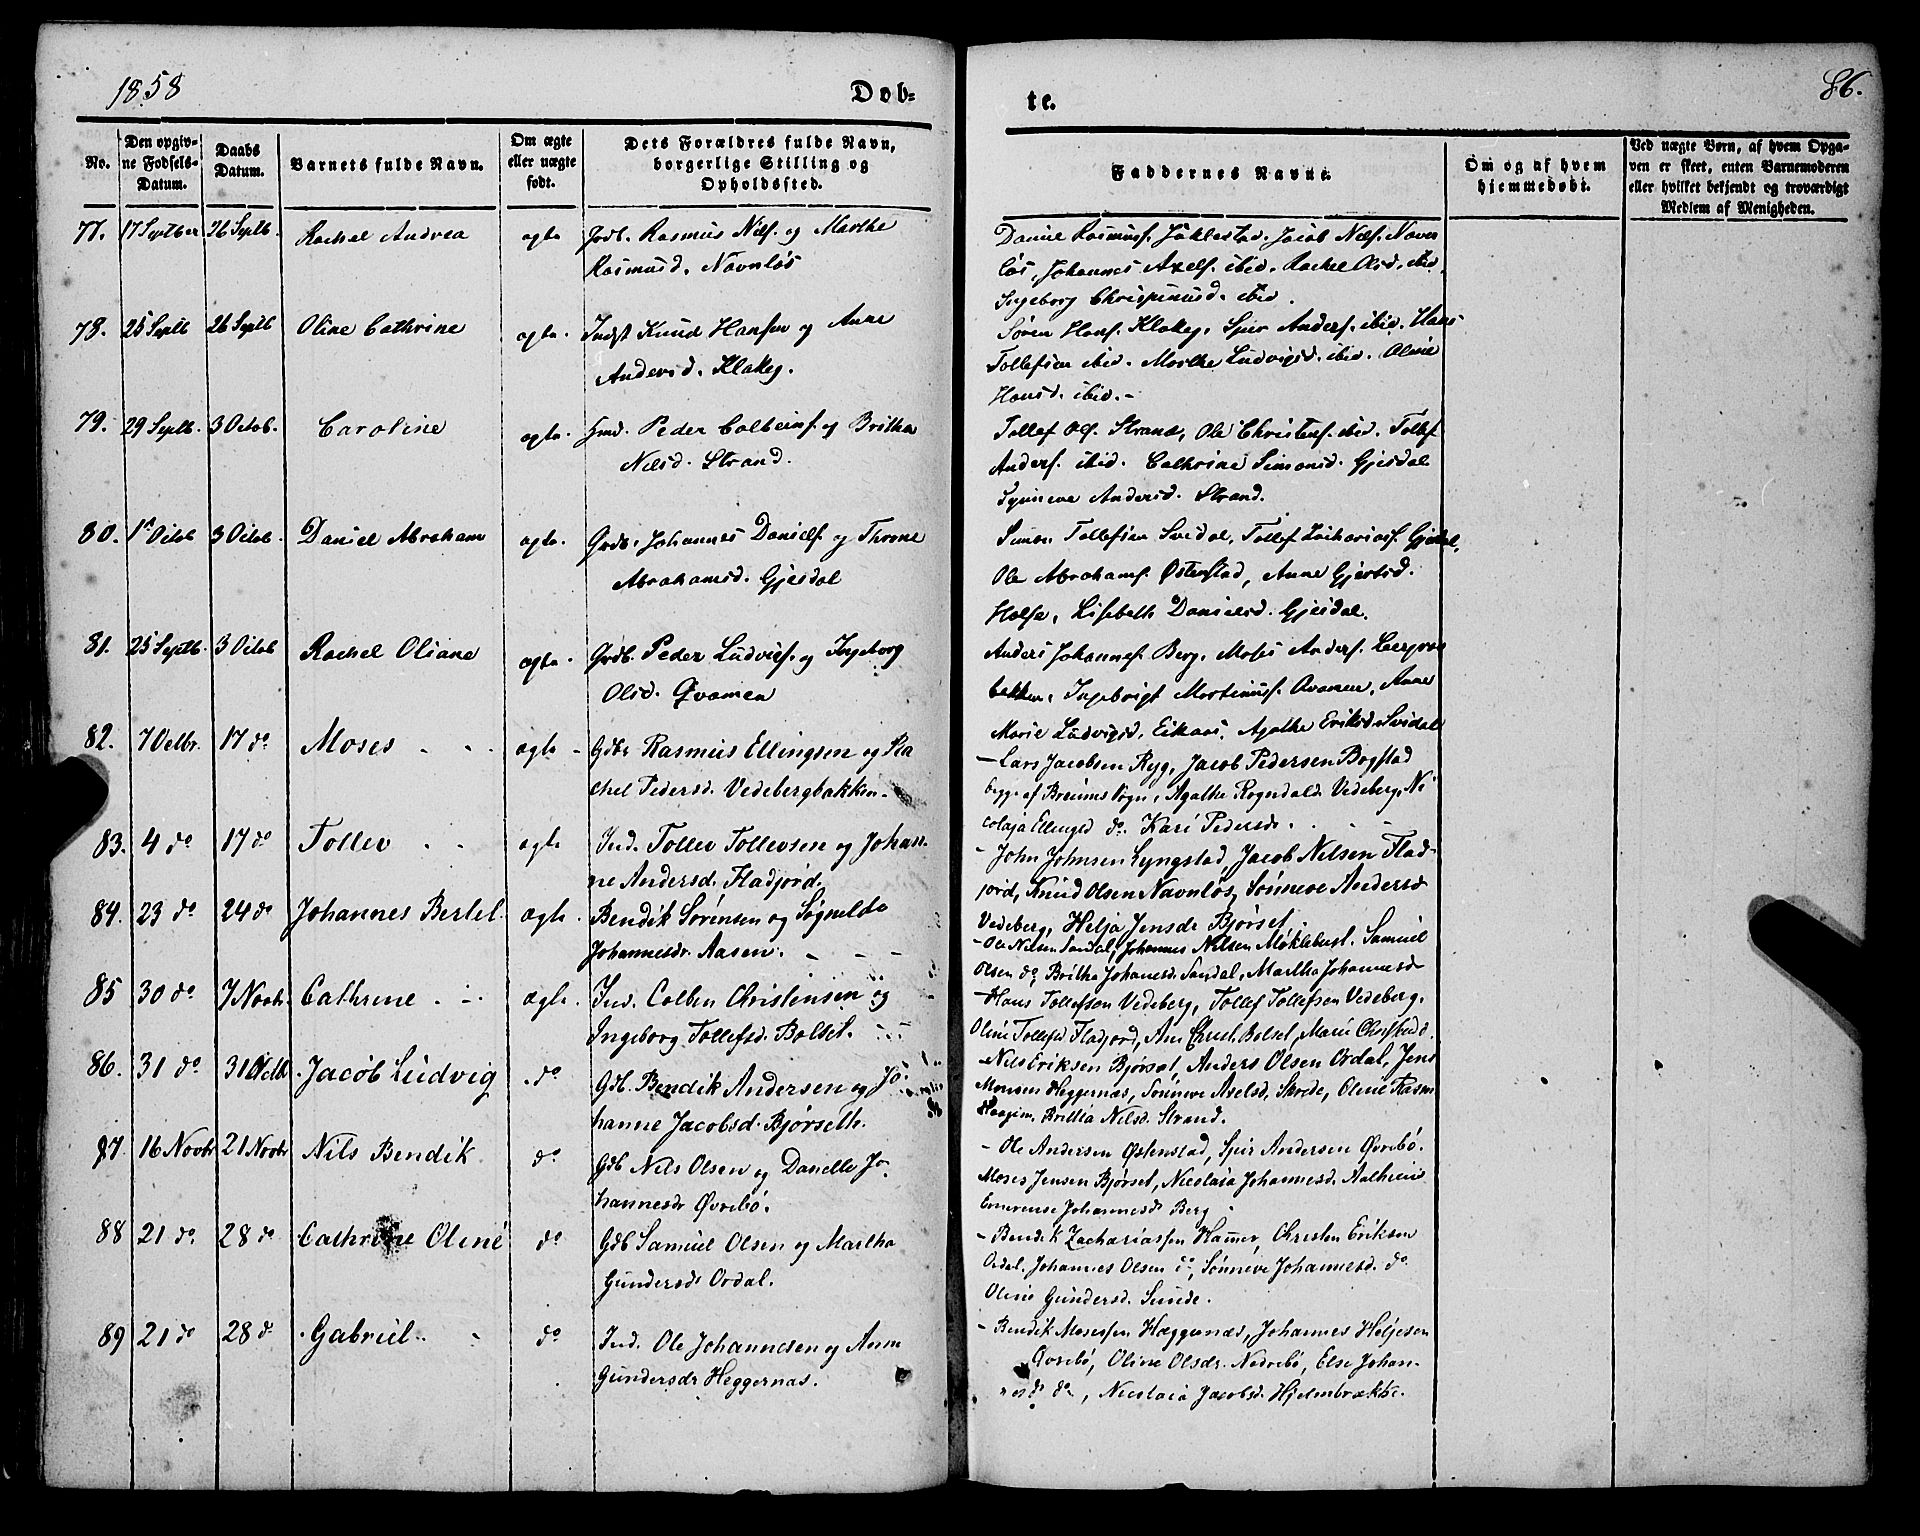 1858
Døb-
te.
86.
No.
Den opgiv-
ne Fødsels-
Datum.
Daabs
Datum.
Barnets fulde Navn.
Om ægte
eller uægte
født.
Dets Forældres fulde Navn,
borgerlige Stilling og
Opholdssted.
Faddernes Navne.
Om og af hvem
hjemmedøbt.
Ved uægte Børn, af hvem Opga-
ven er skeet, enten Barnemoderen
eller hvilket bekjendt og troværdigt
Medlem af Menigheden.
77. 17 Septber 26 Septb. Rachel Andrea ægte Grdb. Rasmus Nilsf. og Marthe
Rasmusd. Navnløs
Daniel Rasmusf. Jacob Nilsf. Navn
løs, Johannes Axelf. ibid. Rachel Olsd. ibid.
Ingeborg ibid.
78. 25 Septb 26 Septb Oline Cathrine ægte. Indst Knud Hansen og Anne
Andersd. Klakeg.
Søren Hansf. Klakeg, Spir Andersf. ibid. Hans
Tollefsen ibid. Marthe Ludvigsd. ibid. Oline
Hansd. ibid.
79. 29 Septb. 3 Octob. Caroline ægte. Hmd. Peder Colbeinsf. og Britha
Nilsd. Strand.
Tollef Olsf. Strand, Ole Christensf. ibid. Tollef
Andersf. ibid. Cathrine Simonsd. Gjesdal
Synneve Andersd. Strand.
80. 1st Octob 3 Octob. Daniel Abraham ægte. Grdb. Johannes Danielsf. og Throne
Abrahamsd. Gjesdal
Simon Tollefsen Svidal, Tollef Zachariasf. Gjesdal,
Ole Abrahamsf. Østenstad, Anne Gjertsd.
Lisebeth Danielsd. Gjesdal.
81. 25 Septb. 3 Octob Rachel Oliane ægte. Grdb. Peder Ludvigsf. og Ingeborg
Olsd. Qvamen
Anders Johannesf. Berg, Moses Andersf.
bakken, Ingebrigt Martinusf. Qvamen, Anne
Marie Ludvigsd. Eikaas, Agathe Eriksd. Svidal
82. 7 Octbr. 17 do Moses ægte - Gdbr Rasmus Ellingsen og Ra
chel Pedersd. Vedebergbakken -
- Lars Jacobsen Ryg, Jacob Pedersen Bogstad
begge af Breims Sogn, Agathe Rogndald. Vedeberg, Ni
colaja Ellingsd do. Kari Pedersd.
83. 4 do 17 do Tollev ægte Ind. Tollev Tollevsen og Johan-
ne Andersd. Fladjord.
- John Johnsen Lyngstad, Jacob Nilsen Flad-
jord, Knud Olsen Navnløs, Sønneve Andersd
Vedeberg, Helja Jensdr Bjørset.
84. 23 do 24 do Johannes Bertel. ægte. Bendik Sørensen og Søgnelde
Johannesdr. Aasen.
- Ole Nilsen Sandal, Johannes Nilsen Møklebust. Samuel
Olsen do, Britha Johanesd. Sandal, Martha Johannesd
85 30 do 7 Novbr. Cathrine ægte. Ind. Colben Christensen og
Ingeborg Tollefsd. Bolset.
- Hans Tollefson Vedeberg, Tollef Tollefsen Vedeberg,
Oline Tollefsd Fladjord, Ane Christ. Bolset, Marie Christensd.
86. 31 do 31 Octb. Jacob Ludvig do Gdb. Bendik Andersen og Jo-
hanne Jacobsd. Bjørseth.
- Nils Eriksen Bjørset, Anders Olsen Ordal, Jens
Monsen Heggernæs, Sønneve Axelsd. Skrede, Oline Rasm
Britha Nilsd. Strand.
87. 16 Novbr 21 Novbr Nils Bendik do Gdb Nils Olsen og Danelle Jo-
hannesdr Øvrebø.
- Ole Andersen Østenstad, Spir Andersen Øvrebø.
Moses Jensen Bjørset, Nicolaia Johannesd.
Emerense Johannesdr Berg
88 21 do. 28 do Cathrine Oline do Gdb Samuel Olsen og Martha
Gundersdr Ordal.
- Bendik Zachariassen Hammer, Christen Eriksen
Ordal. Johannes Olsen do, Sønneve Johannesd. do
Oline Gundersd. Sunde.
89 21 do 28 do Gabriel do Ind. Ole Johannesen og Anne
Gundersdr Heggernæs.
- Bendik Mosessen Heggernæs, Johannes Heljesen
Qvrebø, Oline Olsdr. Nedrebø, Else Johan-
nesd do, Nicolaia Jacobsd. Hjelmbrække.